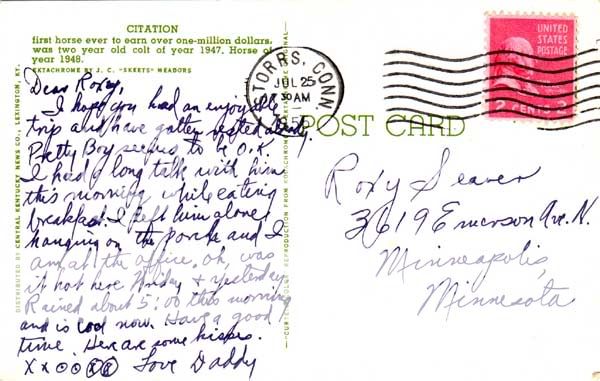 CITATION
first horse ever to earn over one-million dollars.
was two year old colt of year 1947. Horse of
year 1948.
EKTACHROME BY J. C. "SKEETS" MEADORS
DISTRIBUTED BY CENTRAL KENTUCKY NEWS CO., LEXINGTON, KY.
Dear Roxy,
I hope you had an enjoyable
trip and have gotten rested already.
Pretty Boy seems to be O.K
I had a long talk with him
this morning while eating
breakfast. I left him alone
hanging on the porche and I
am at the office. oh, was
it hot here Friday & yesterday
Rained about 5:00 this morning
and is cool now. Have a good
time. Here are some kisses.
x x o o x x
Love Daddy
STORRS, CONN.
JUL 25
30 AM
POST CARD
UNITED
STATES
POSTAGE
2 CENTS 2
Roxy Seaver
3619 Emerson Ave. N.
Minneapolis,
Minnesota